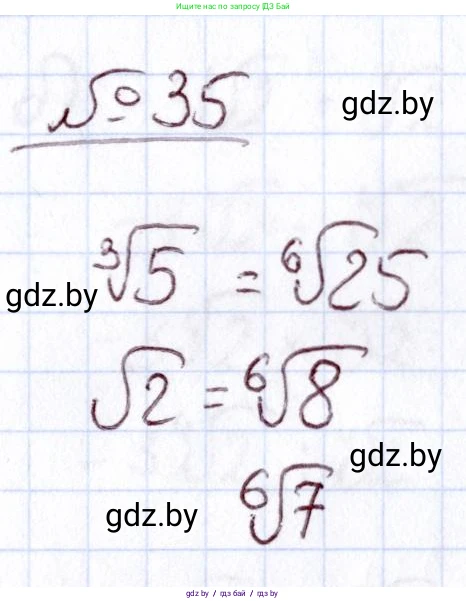 Ищите нас по запросу ГДЗ Бай
№35
gdz.by
∛5 = ⁶√25
gdz.by
√2 = ⁶√8
gdz.by
⁶√7
gdz.by
gdz.by / гдз бай / гдз.by